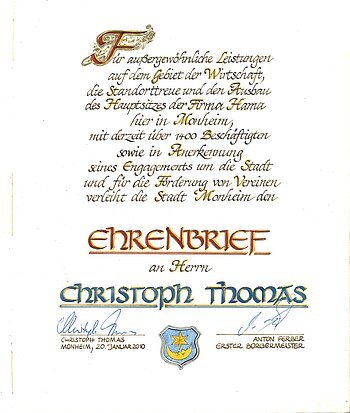 Für außergewöhnliche Leistungen
auf dem Gebiet der Wirtschaft,
die Standorttreue und den Ausbau
des Hauptsitzes der Firma Hama
hier in Monheim,
mit derzeit über 1400 Beschäftigten
sowie in Anerkennung
seines Engagements um die Stadt
und für die Förderung von Vereinen
verleiht die Stadt Monheim den
EHRENBRIEF
an Herrn
CHRISTOPH THOMAS
CHRISTOPH THOMAS
MONHEIM, 20. JANUAR 2010
ANTON FERBER
ERSTER BÜRGERMEISTER